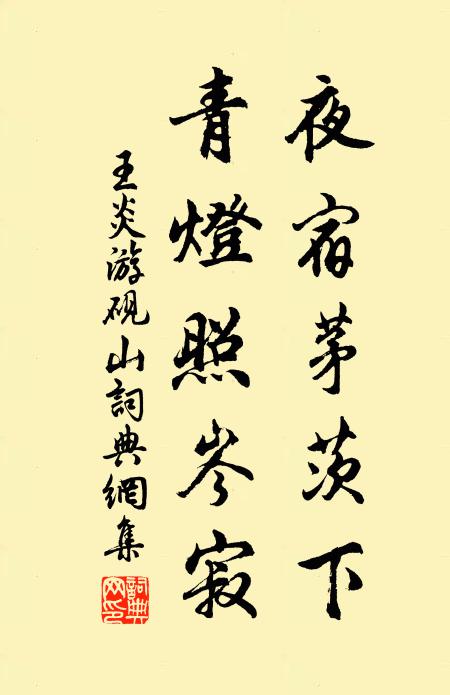 夜宿茅茨下
青燈照岑寂
王炎游砚山詞典網集
詞典網印